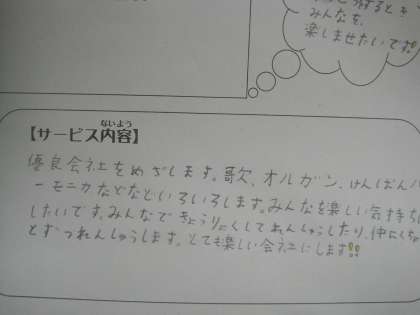 みんなを、
楽しませたいです!
ないよう
【サービス内容】
優良会社をめざします。歌、オルガン、けんばんハ
ーモニカなどなどいろいろします。みんなを楽しい気持ちに
したいです。みんなできょうりょくしてれんしゅうしたり、仲
とずつれんしゅうします。とても楽しい会社にします!!